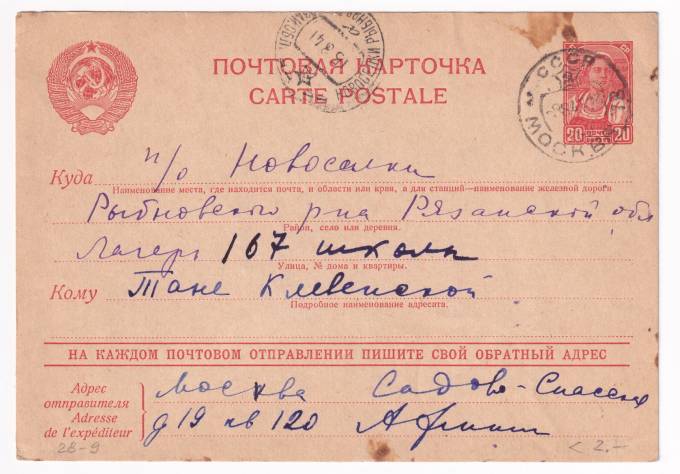 ПОЧТОВАЯ КАРТОЧКА
CARTE POSTALE
СССР
МОСКВА
20 ПОЧТА 20
Куда п/о Новоселки
Наименование места, где находится почта, и области или края, а для станций—наименование железной дороги
Рыбновского р-на Рязанской обл
Район, село или деревня.
Лагерь 167 школы
Улица, № дома и квартиры.
Кому Тане Клевенской
Подробное наименование адресата.
НА КАЖДОМ ПОЧТОВОМ ОТПРАВЛЕНИИ ПИШИТЕ СВОЙ ОБРАТНЫЙ АДРЕС
Адрес отправителя
Adresse de l'expéditeur
Москва Садово-Спасская
д 19 кв 120
28-9
< 2.-